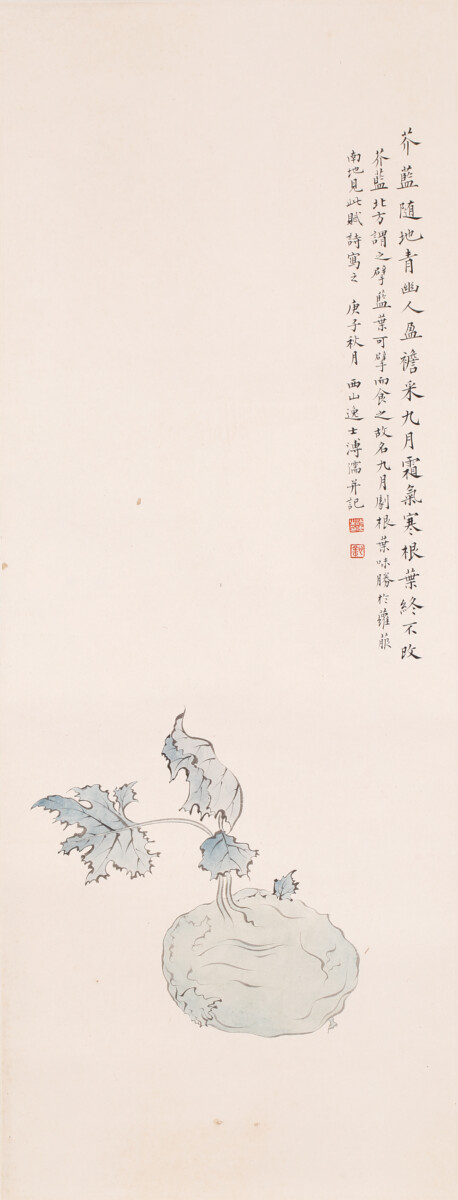 芥藍隨地青幽人盈襜采九月霜氣寒根葉終不改
芥藍北方謂之擘藍葉可擘而食之故名九月劚根葉味勝於蘿菔
南地見此賦詩寫之 庚子秋月 西山逸士溥儒并記